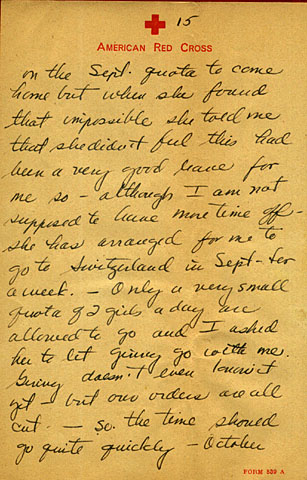 15
AMERICAN RED CROSS
on the Sept. quota to come
home but when she found
that impossible she told me
that she didn't feel this had
been a very good leave for
me so - although I am not
supposed to have more time off -
she has arranged for me to
go to Switzerland in Sept - for
a week. - Only a very small
quota of 2 girls a day are
allowed to go and I asked
her to let Ginny go with me.
Ginny doesn't even know it
yet - but our orders are all
cut. - So the time should
go quite quickly - October
FORM 539 A